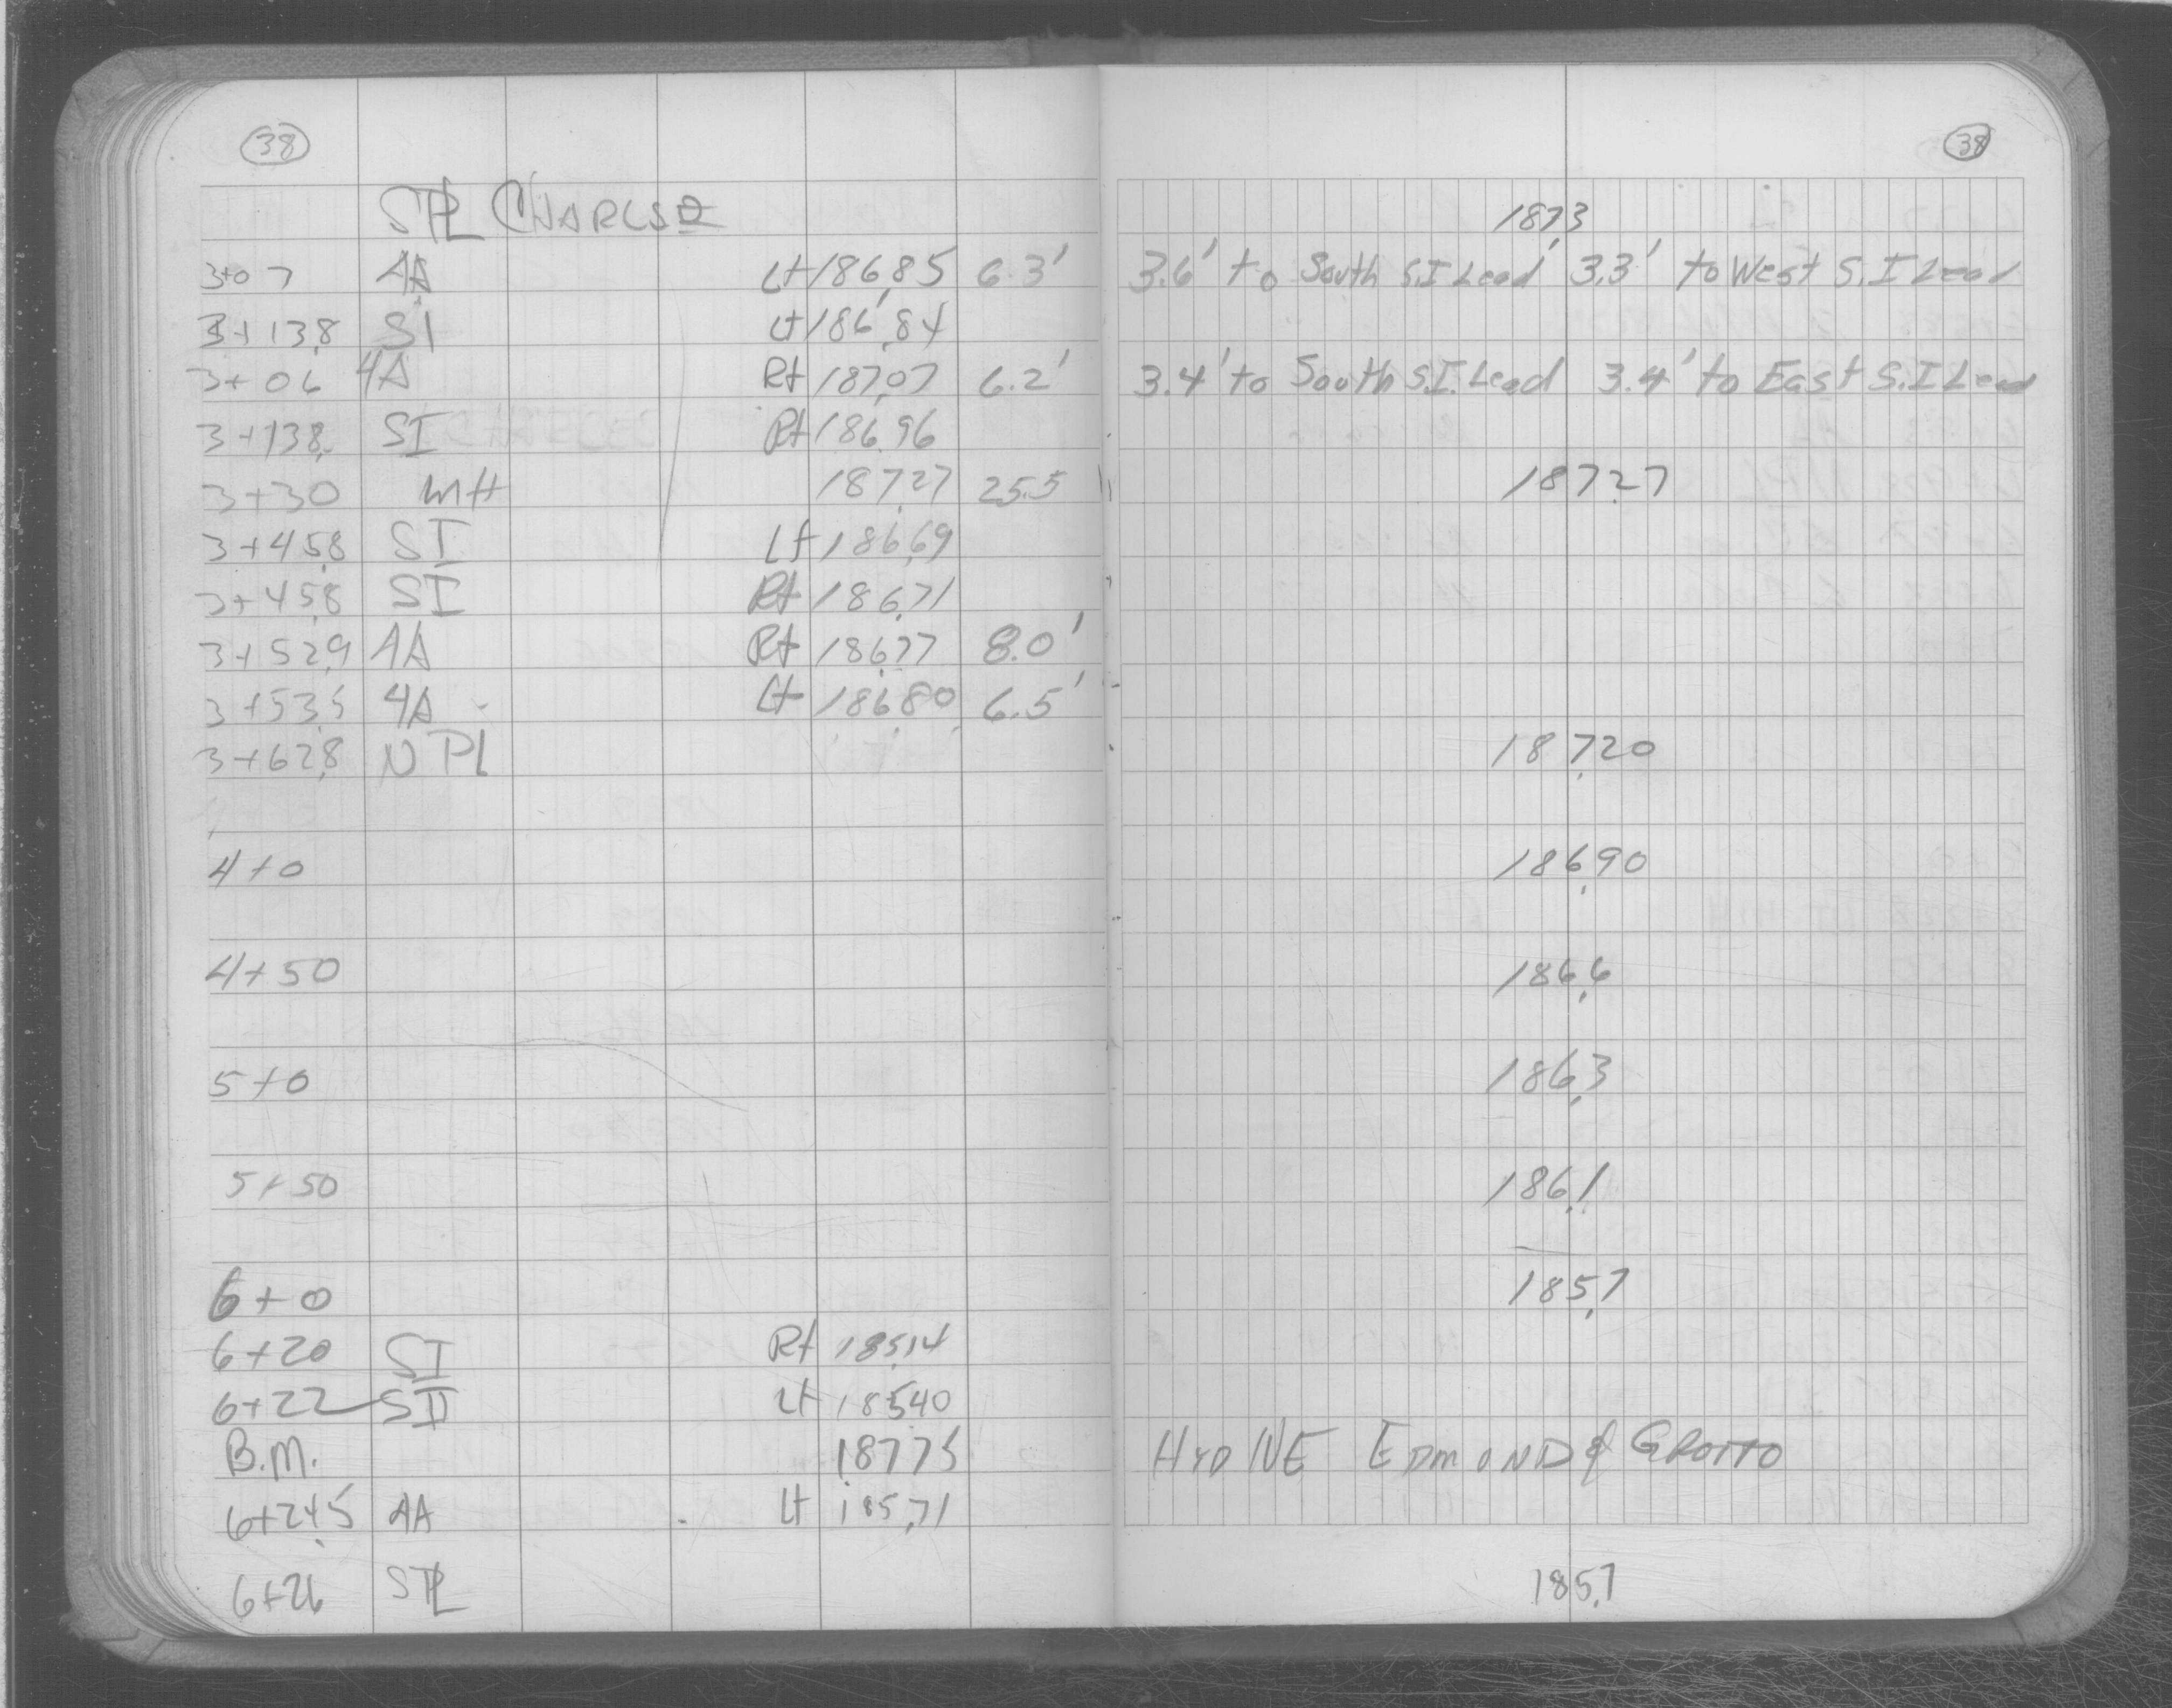 38 38
SPL CHARLSE 187.3
3+07 4A Lt 186.85 6.3' 3.6' to South S.I Lead 3.3' to West S.I Lead
3+13.8 SI Lt 186.84
3+06 4A Rt 187.07 6.2' 3.4' to South S.I. Lead 3.4' to East S.I Lead
3+13.8 SI Rt 186.96
3+30 MH 187.27 25.5 187.27
3+45.8 SI Lt 186.69
3+45.8 SI Rt 186.71
3+52.9 4A Rt 186.77 8.0'
3+53.5 4A Lt 186.80 6.5'
3+62.8 N PL 187.20
4+0 186.90
4+50 186.6
5+0 186.3
5+50 186.1
6+0 185.7
6+20 SI Rt 185.14
6+22 SI Lt 185.40
B.M. 187.75 HYD NE EDMOND & GROTTO
6+24.5 4A Lt 185.71
6+26 SPL 185.7